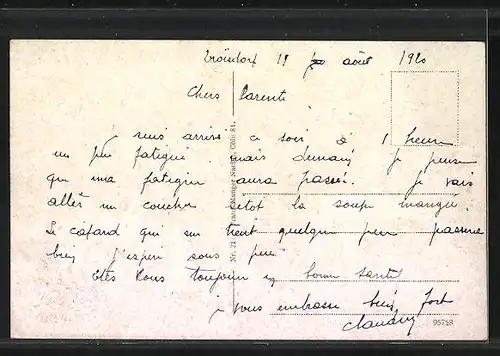 Troisdorf 11 août 1920
Chers Parents
je suis arrivé ce soir à 1 heure
un peu fatigué mais demain je pense
que ma fatigue aura passé. je vais
aller me coucher sitot la soupe mangée.
Le cafard qui me tient quelque peu passera
bien j'espère sous peu.
Etes Vous toujours en bonne santé
je vous embrasse bien fort
Nr. 21 Franz Cöln
95758